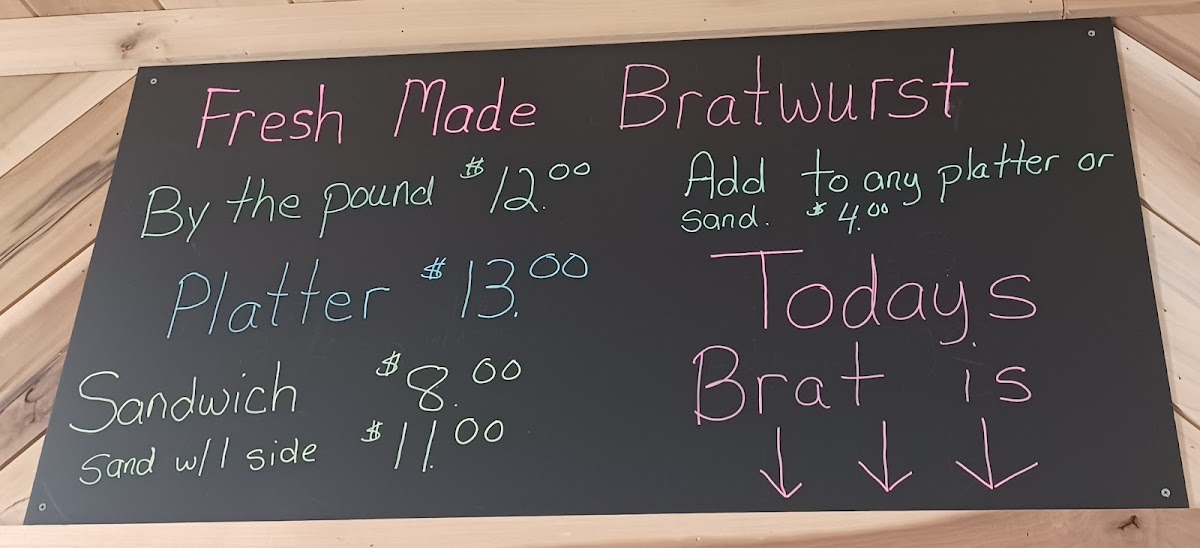 Fresh Made Bratwurst
By the pound $12.00
Platter $13.00
Sandwich $8.00
Sand w/1 side $11.00
Add to any platter or
sand. $4.00
Todays
Brat is